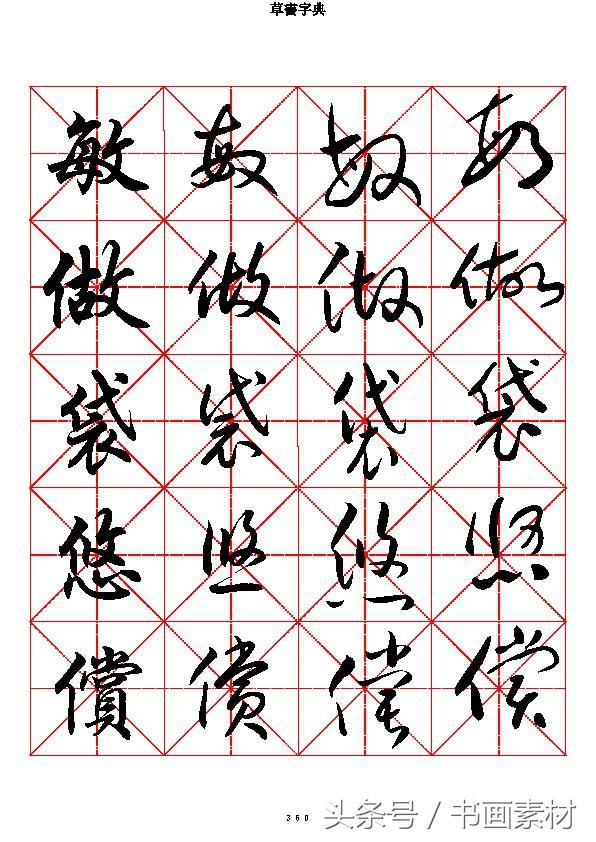 草書字典
敏敏敏敏
做做做做
袋袋袋袋
悠悠悠悠
償償償償
360
头条号 / 书画素材